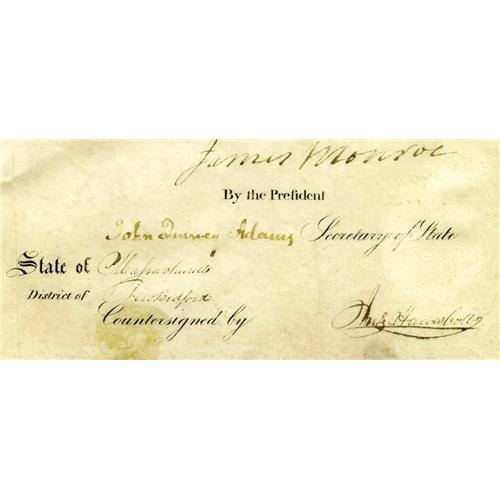 James Monroe
By the Preſident
John Quincy Adams Secretary of State
State of Massachusetts
District of New Bedford
Countersigned by